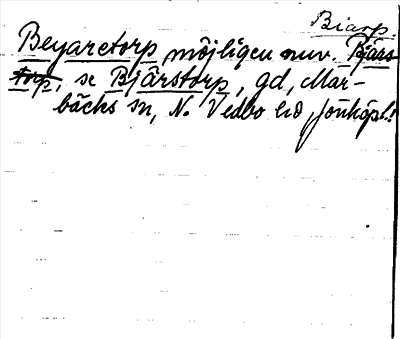 Biarp.
Beyaretorp möjligen nuv. Bjärs
torp, se Bjärstorp, gd, Mar-
bäcks sn, N. Vedbo hd, Jönköp.l.